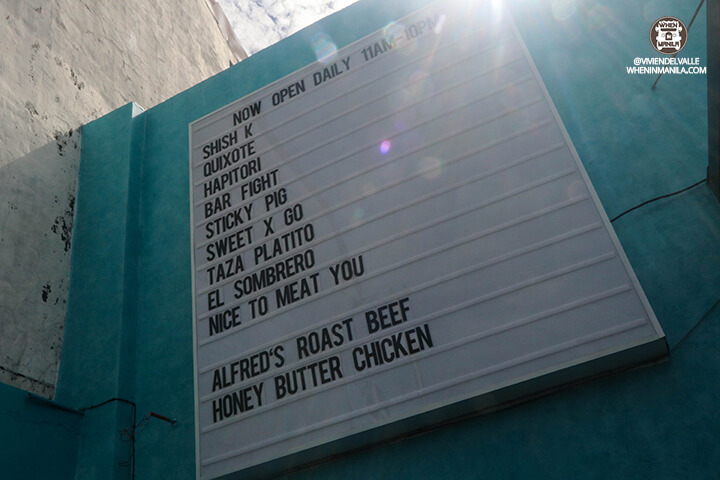 NOW OPEN DAILY 11AM-10PM
SHISH K
QUIXOTE
HAPITORI
BAR FIGHT
STICKY PIG
SWEET X GO
TAZA PLATITO
EL SOMBRERO
NICE TO MEAT YOU
ALFRED'S ROAST BEEF
HONEY BUTTER CHICKEN
WHEN IN MANILA
@VMENDELVALLE
WHENINMANILA.COM